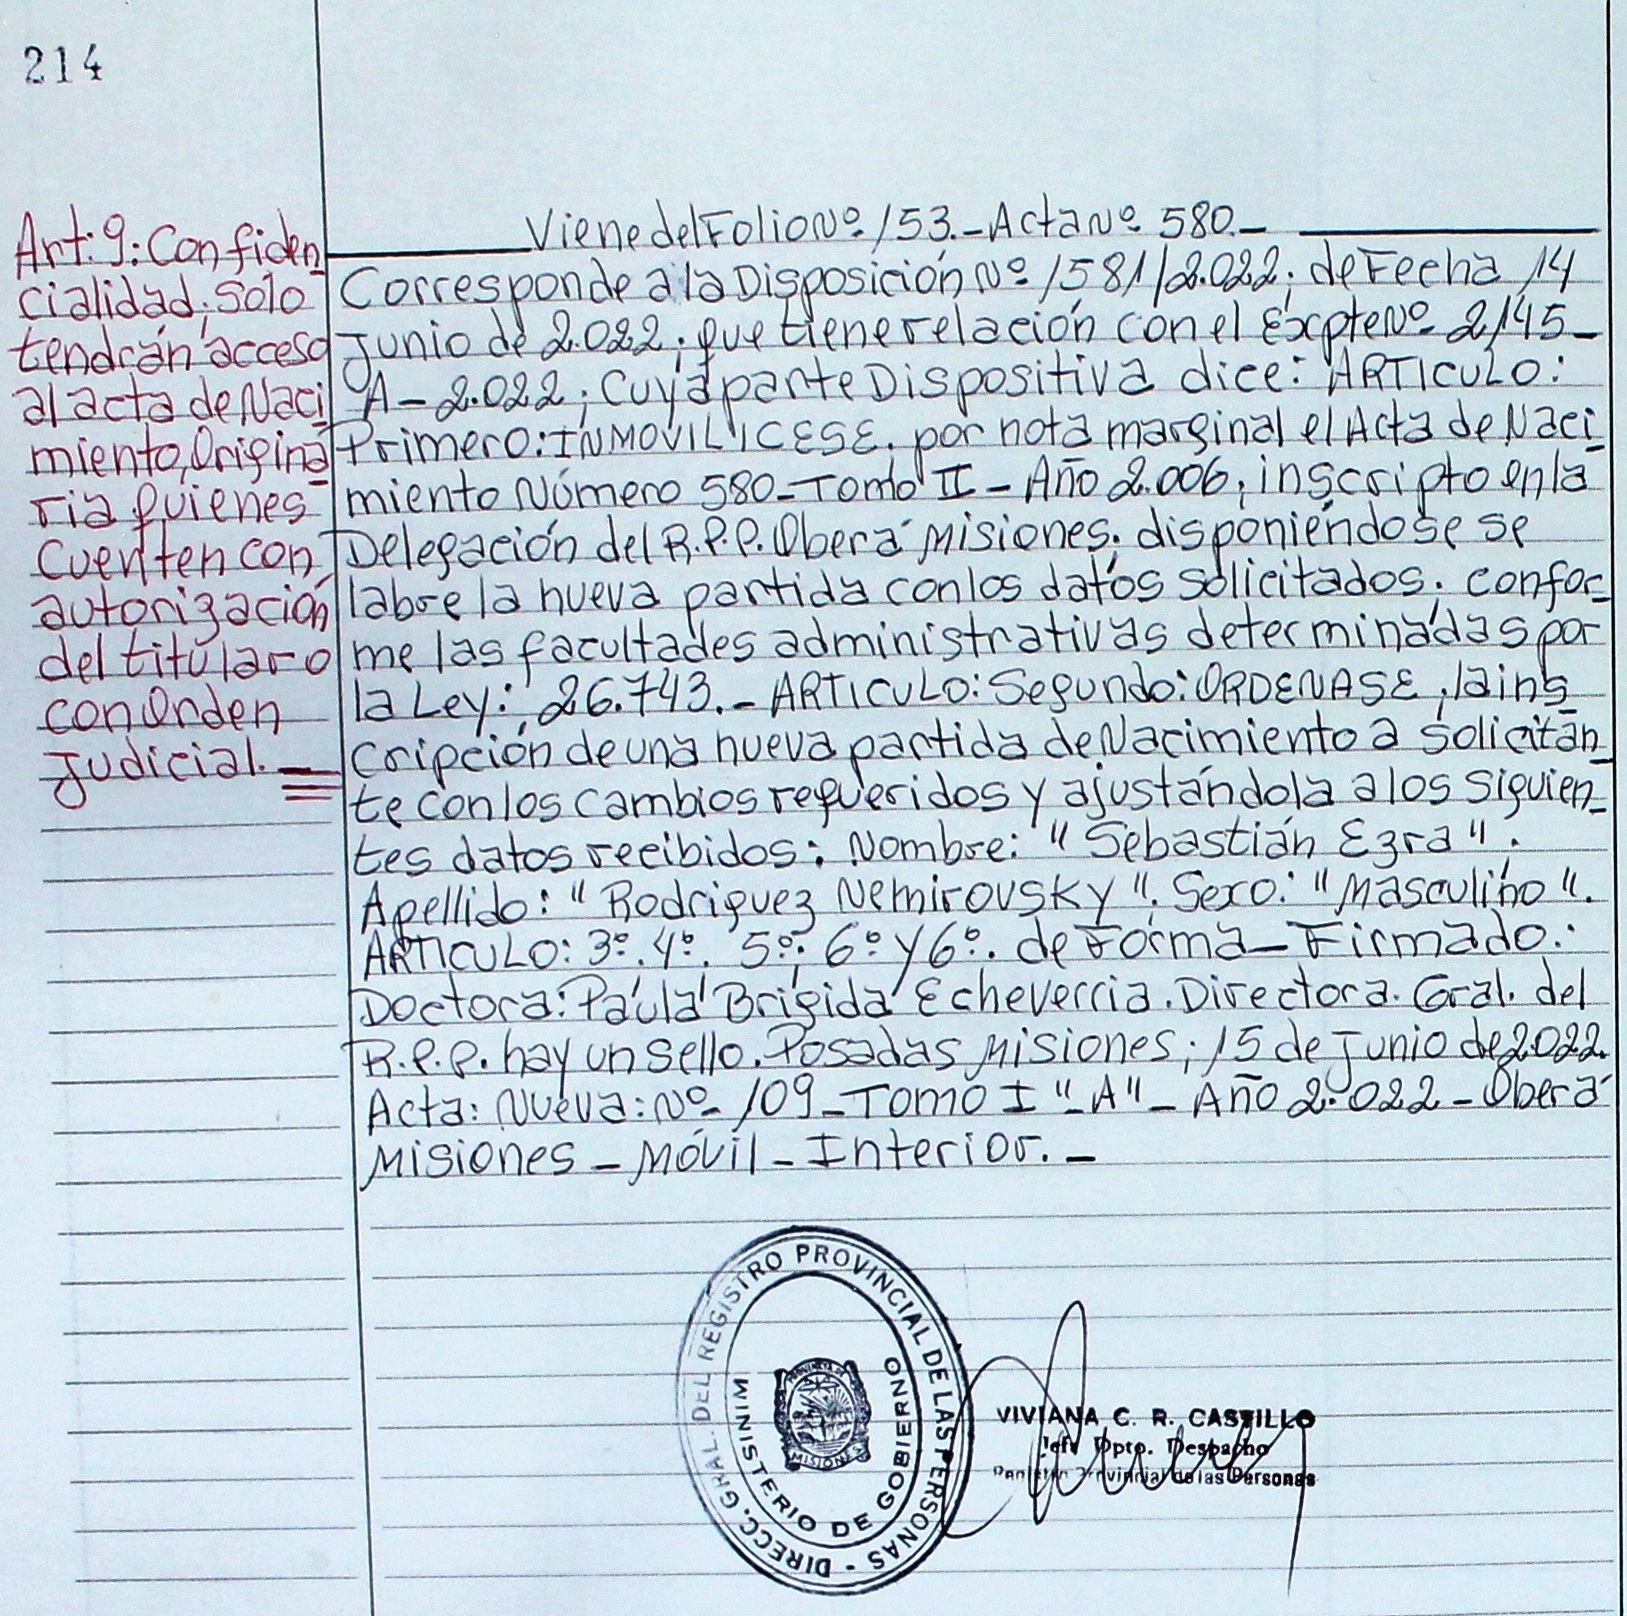 214
Art: 9: Confiden
cialidad; sólo
tendrán acceso
al acta de Naci
miento, Origina
ria quienes
Cuenten con
autorización
del titular o
con Orden
Judicial. _
Viene del Folio Nº 153._ Acta Nº 580._
Corresponde a la Disposición Nº 1581/2.022; de Fecha 14
Junio de 2.022; que tiene relación con el Expte Nº 2145_
A_ 2.022; Cuya parte Dispositiva dice: ARTICULO:
Primero: INMOVILICESE. por nota marginal el Acta de Naci_
miento Número 580_ Tomo II _ Año 2.006; inscripto en la
Delegación del R.P.P. Oberá Misiones; disponiéndose se
labre la nueva partida con los datos solicitados. Confor_
me las facultades administrativas determinadas por
la Ley: 26.743._ ARTICULO: Segundo: ORDENASE, la ins_
cripción de una nueva partida de Nacimiento a solicitan_
te con los cambios requeridos y ajustándola a los siguien_
tes datos recibidos: Nombre: "Sebastián Ezra".
Apellido: "Rodriguez Nemirovsky". Sexo: "Masculino".
ARTICULO: 3º. 4º. 5º; 6º y 6º. de Forma _ Firmado.:
Doctora: Paula Brigida Echeverria. Directora. Gral. del
R.P.P. hay un sello. Posadas Misiones; 15 de Junio de 2.022.
Acta: Nueva: Nº 109_ Tomo I "_A"_ Año 2.022 _ Oberá
Misiones _ Móvil _ Interior. _
DIRECC. GRAL. DEL REGISTRO PROVINCIAL DE LAS PERSONAS -
MINISTERIO DE GOBIERNO
MISIONES
VIVIANA C. R. CASTILLO
Jefe Dpto. Despacho
Provincial de las Personas